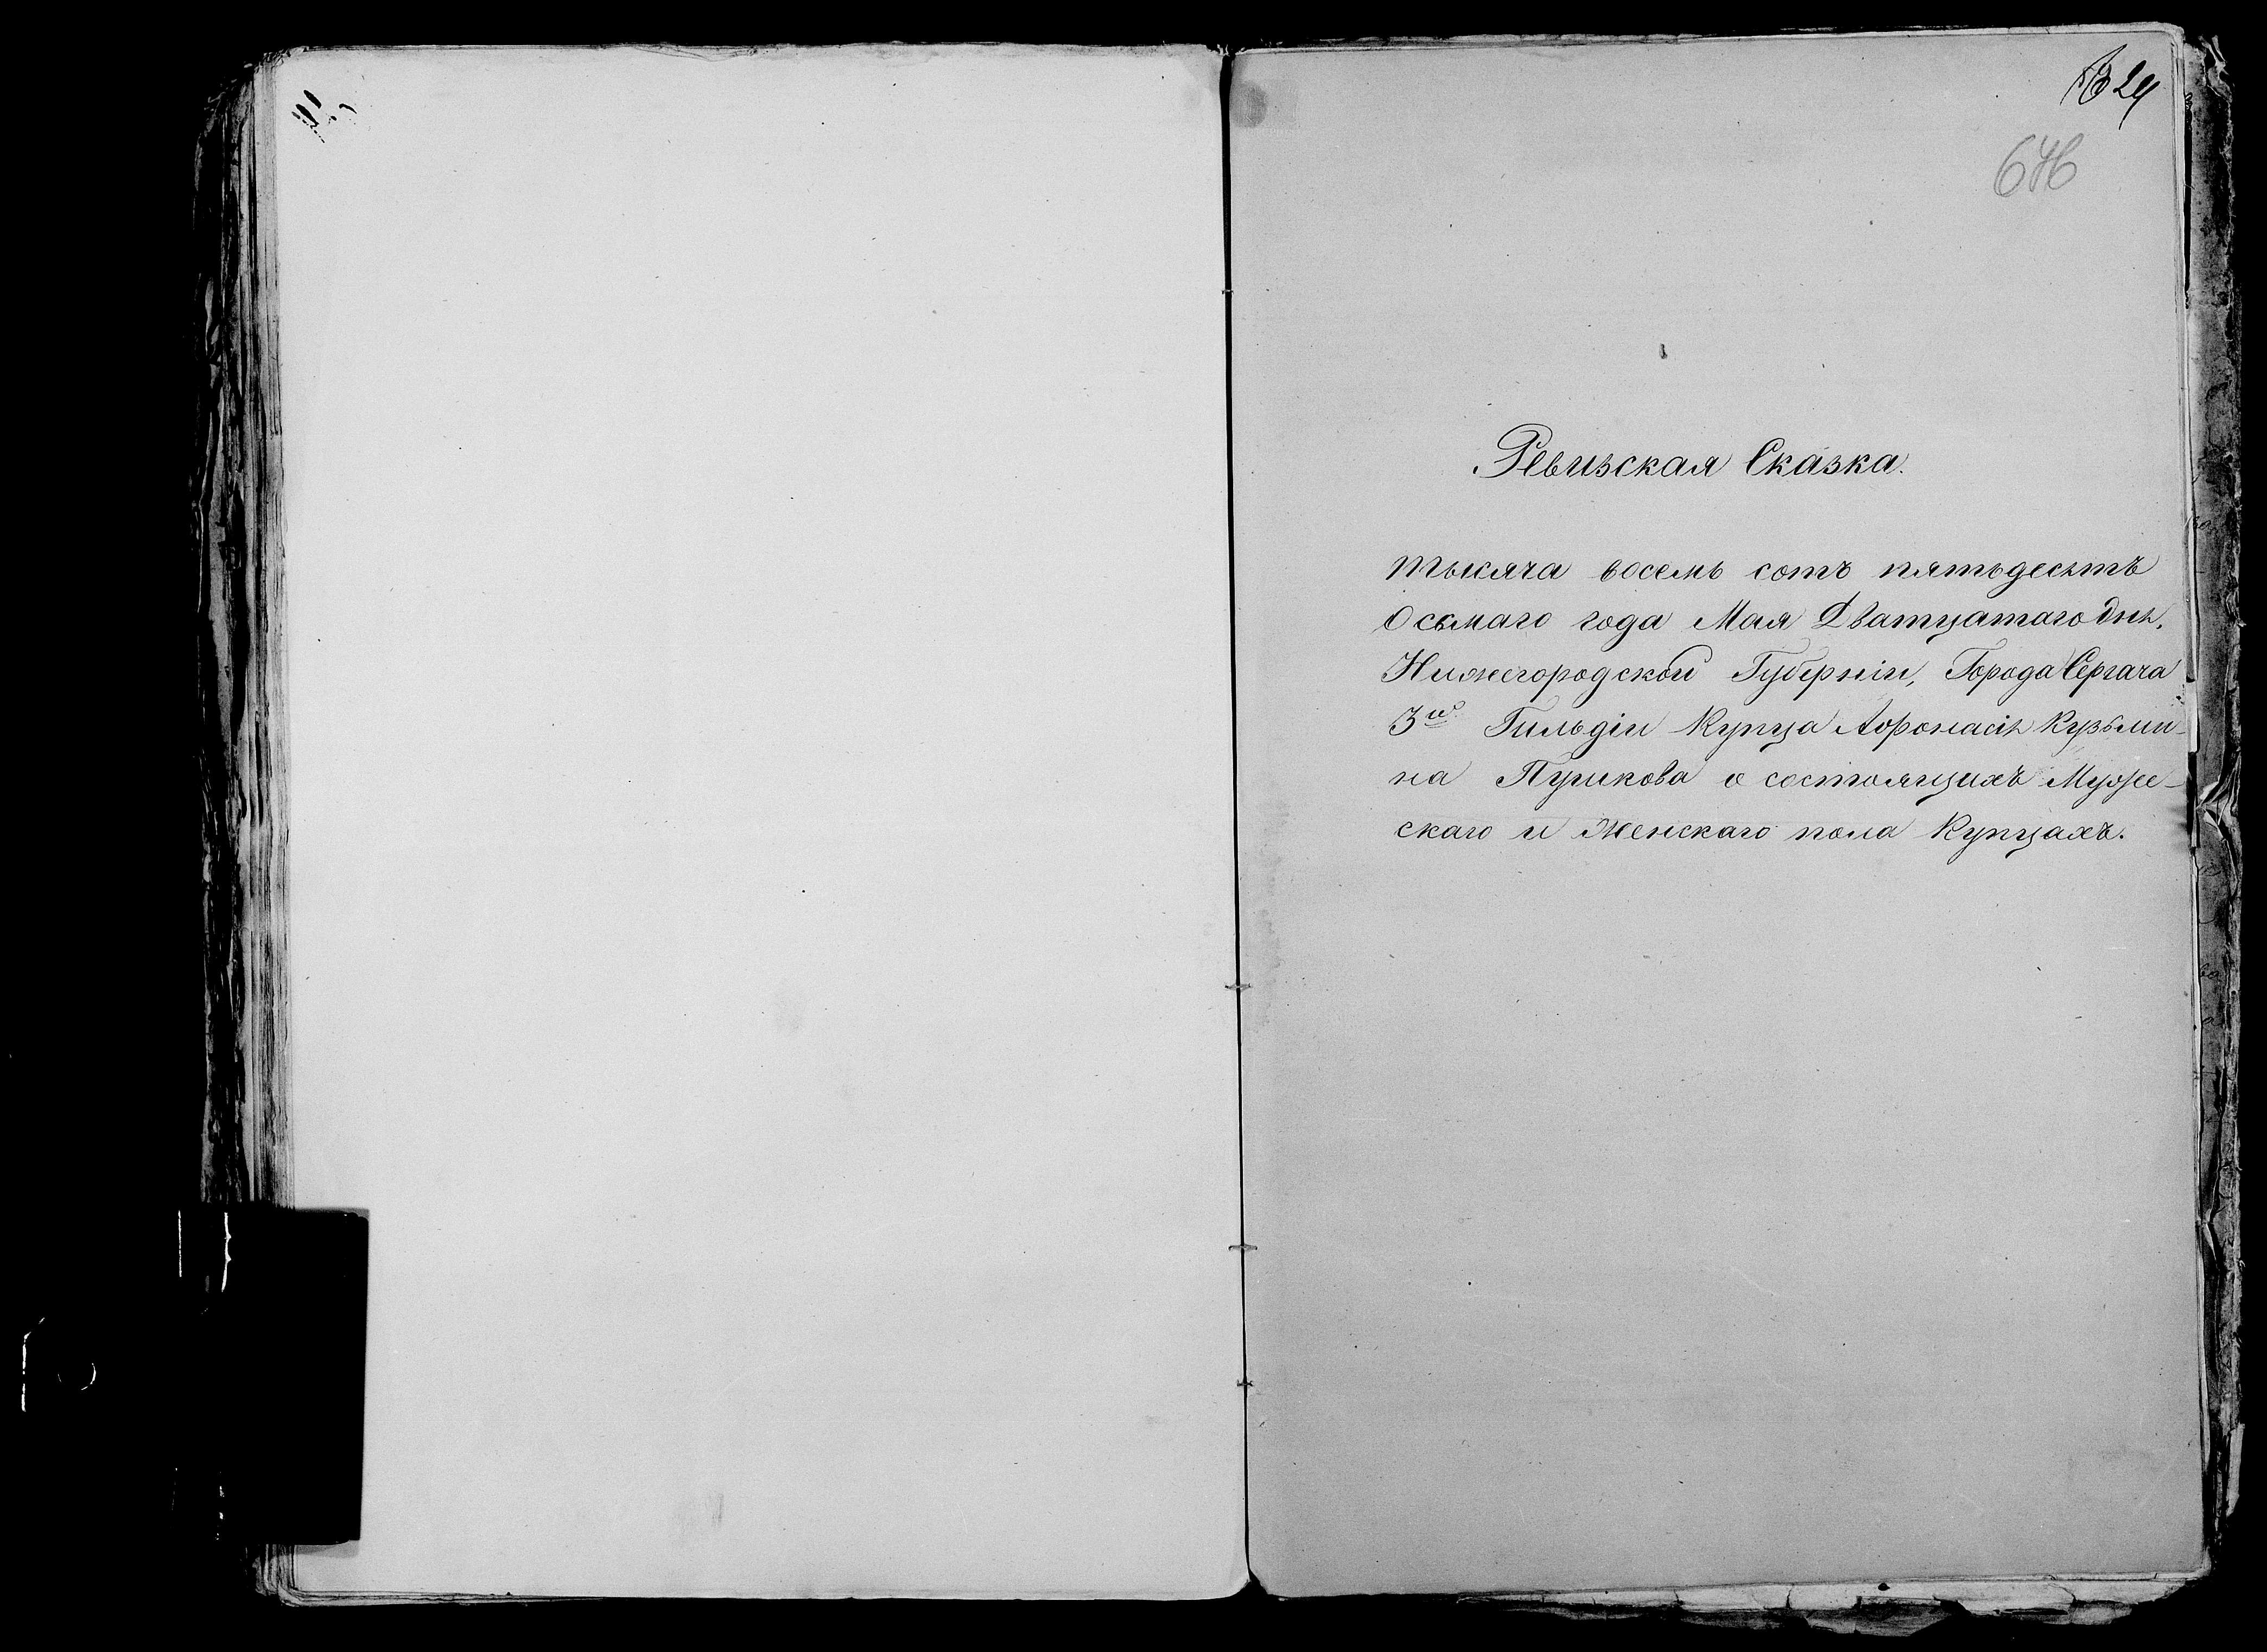 № 29
646
Ревизская Сказка.
тысяча восемь сотъ пятьдесятъ
Осьмаго года Мая Дватцатаго дня.
Нижегородской Губерніи, Города Сергача
3й Гильдіи Купца Афонасія Кузьми-
на Пушкова о состоящихъ Мужес-
скаго и Женскаго пола Купцахъ.